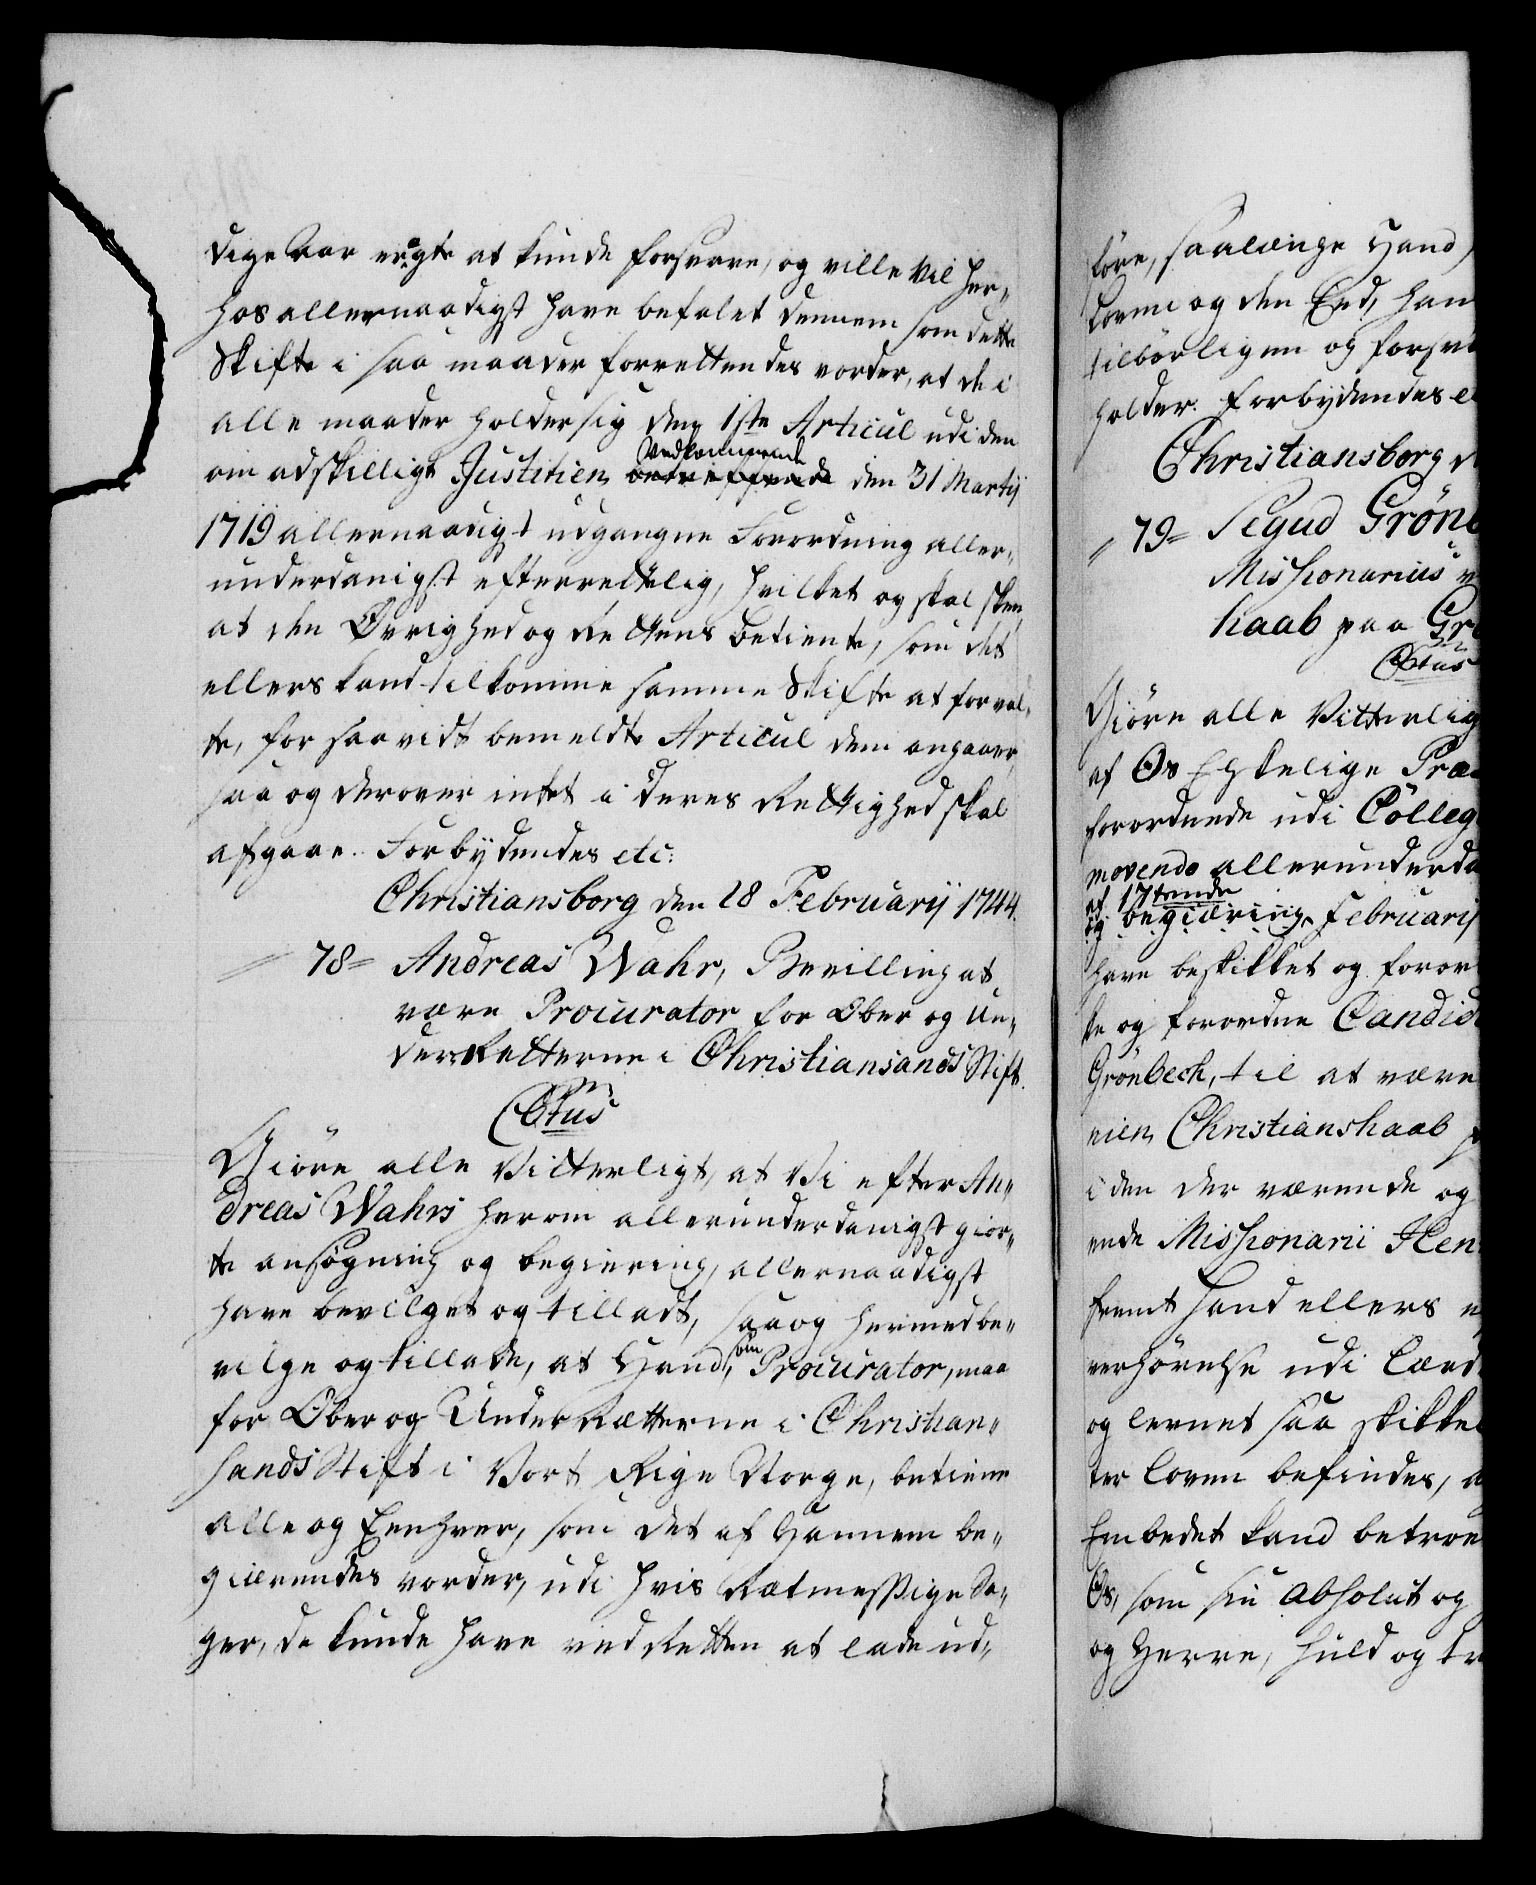 dige Svar eragte at kunde forsvare, og ville Vi her,,
hos allernaadigst have befalet dennem som dette
Skifte i saa maader forrettendes vorder, at de i
alle maader holder sig den 1ste Articul udi den
om adskilligt Justitien Vedkommende den 31 Martij
1719 allernaadigst udgangne Forordning aller,,
underdanigst efterrettelig, hvilket og skal skee
at den Øvrighed og Rettens betiente, som det
ellers kand tilkomme samme Skifte at forval,,
te, for saavidt bemeldte Articul dem angaaer,
saa og derover intet i deres Rettighed skal
afgaae. Forbydendes etc:
Christiansborg den 28 Februarij 1744.
78= Andreas Wahr, Bevilling at
være Procurator for Ober og Un,,
der Retterne i Christiansands Stift.
C6tus
Giøre alle Vitterligt, at Vi efter An,,
dreas Wahrs herom allerunderdanigst gior,,
te ansøgning og begiering, allernaadigst
have bevilget og tilladt, saa og hermed be,,
vilge og tillade, at Hand, som Procurator, maa
for Ober og Under Rætterne i Christian,,
sands Stift i Vort Rige Norge, betiene
alle og Eenhver, som det af Hannem be,,
giærendes vorder, udi hvis Rætmessige Sa,,
ger, de kunde have ved Retten at lade ud,,
løre, saalænge Hand
Loven og den Eed, han
tilbørligen og forsv
holder. Forbydendes e
Christiansborg d
79= Segud Grønb
Missionarius v
haab paa Gr
C6tus
Giøre alle Vitterlig
af Os Elskelige Præ
forordnede udi Colleg
movendo allerunderda
af 17tende
og begiæring Februarij
have beskikket og foror
ke og forordne Candid
Grønbech, til at være
nien Christianshaab p
i den der værende og
ende Missionarii Hen
fremt Hand ellers e
verhørelse udi Lærd
og lernet saa skikke
ter Loven befindes, a
Embedet kand betroe
Os, som sin Absolut og
og Herre, huld og tr